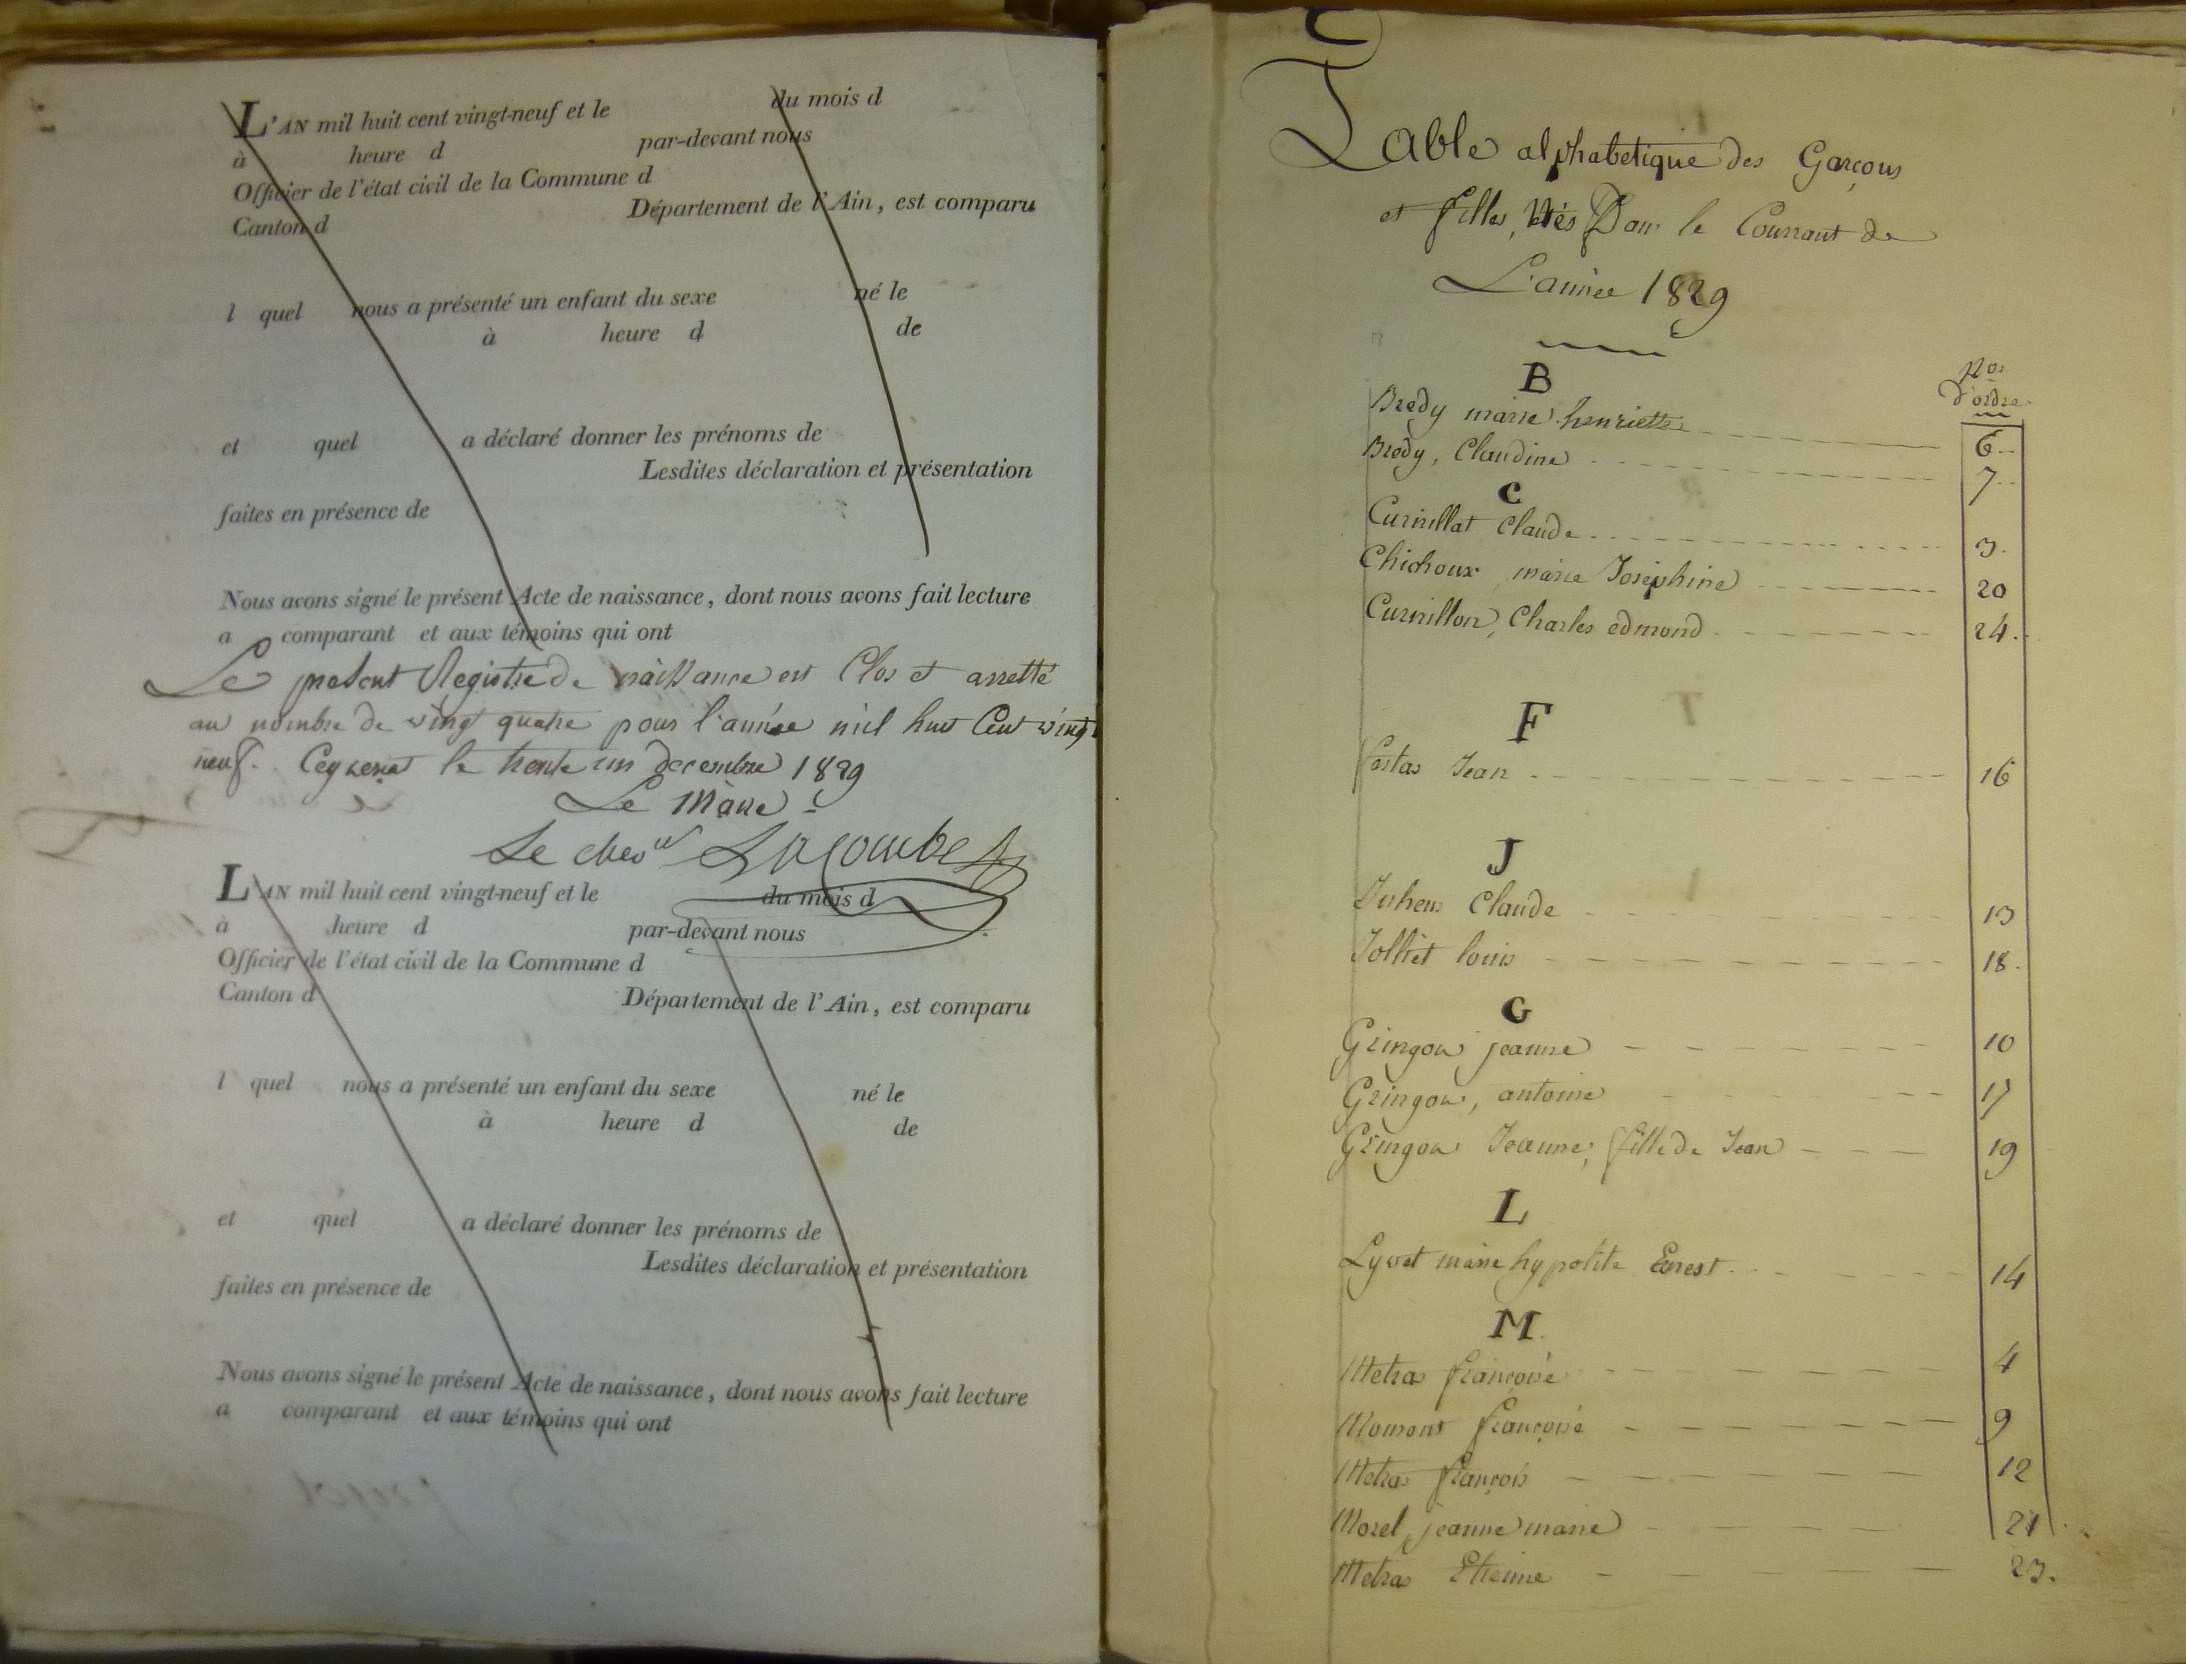 L'AN mil huit cent vingt-neuf et le du mois d
à heure d par-devant nous
Officier de l'état civil de la Commune d
Canton d Département de l'Ain, est comparu
l quel nous a présenté un enfant du sexe né le
à heure d de
et quel a déclaré donner les prénoms de
Lesdites déclaration et présentation
faites en présence de
Nous avons signé le présent Acte de naissance, dont nous avons fait lecture
a comparant et aux témoins qui ont
Le present Registre de naissance est Clos et arretté
au nombre de vingt quatre pour l'année mil huit Cent vingt
neuf. Ceyzeriat le trente un decembre 1829
Le Maire
Le chev Lacombe
L'AN mil huit cent vingt-neuf et le du mois d
à heure d par-devant nous
Officier de l'état civil de la Commune d
Canton d Département de l'Ain, est comparu
l quel nous a présenté un enfant du sexe né le
à heure d de
et quel a déclaré donner les prénoms de
Lesdites déclaration et présentation
faites en présence de
Nous avons signé le présent Acte de naissance, dont nous avons fait lecture
a comparant et aux témoins qui ont
Table alphabetique des Garçons
et filles, Nés Dans le Courrant de
L'année 1829
Nos
d'ordre
B
Bredy marie henriette 6
Bredy, Claudine 7
C
Curnillat Claude 3
Chichoux marie Josephine 20
Curnillon, Charles edmond 24
F
Jean 16
J
Claude 13
Jolliet louis 18
G
Gringoz jeanne 10
Gringoz, antoine 17
Gringoz Jeanne, fille de Jean 19
L
Lyvet marie hypolite Ernest 14
M
Metra françoise 4
Momont françoise 9
Metra françois 12
Morel jeanne marie 21
Metra Etienne 23